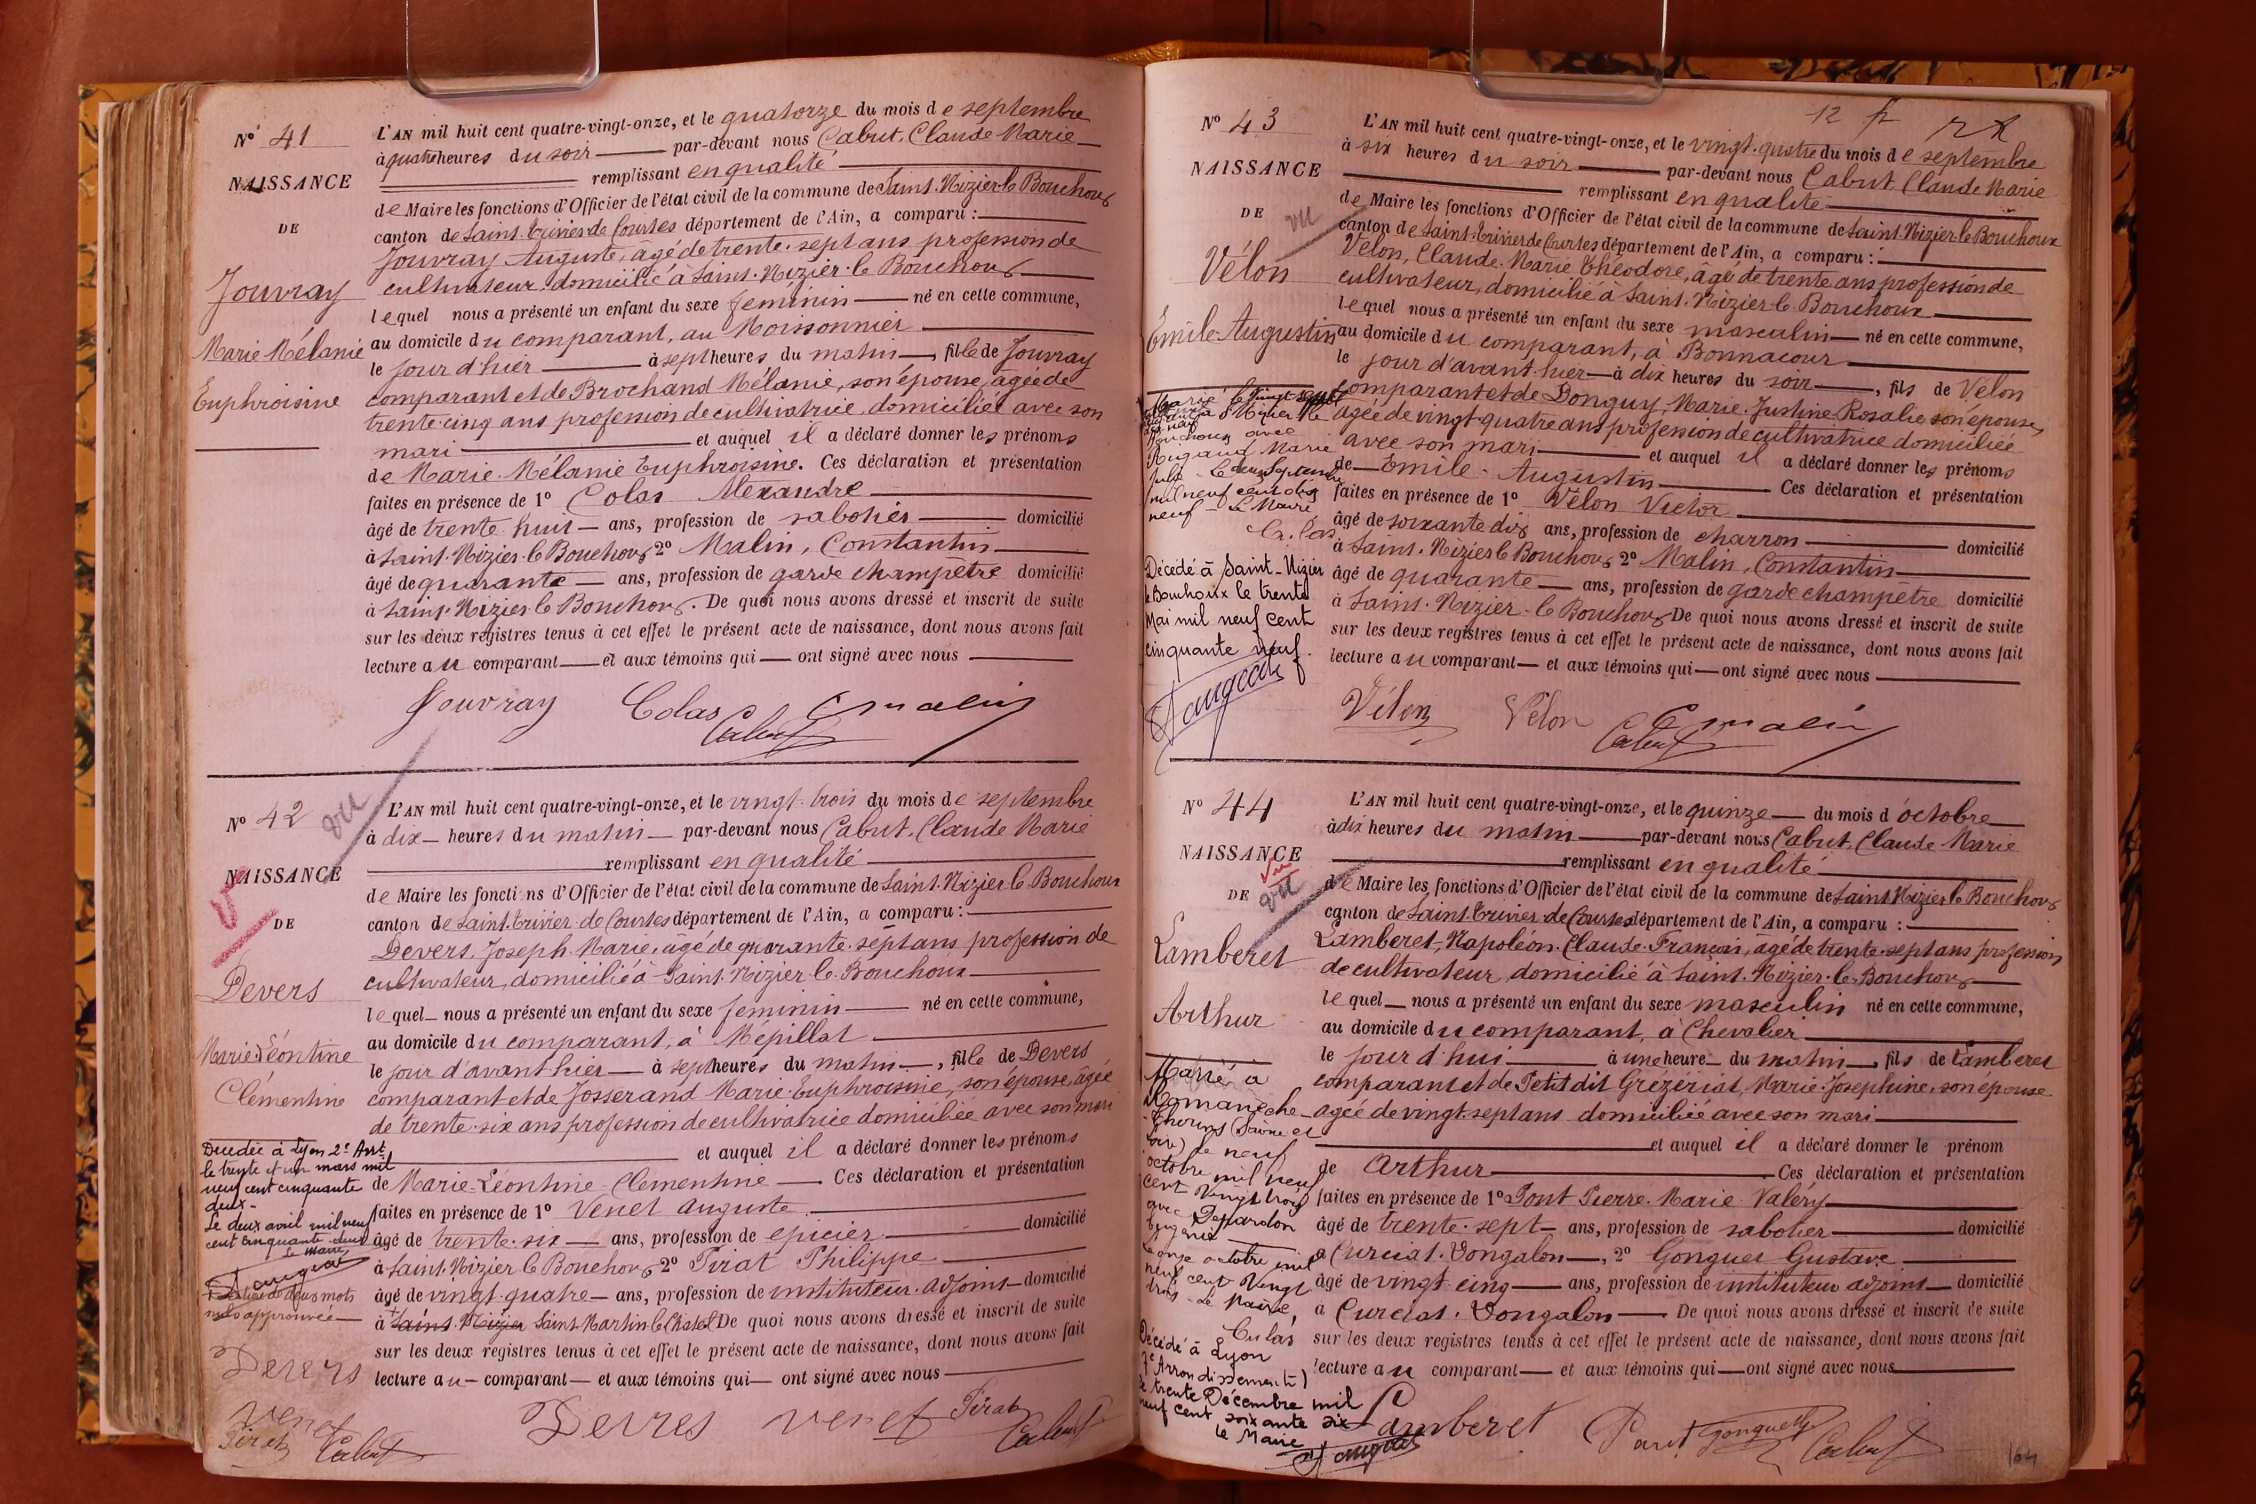 Nº 41
NAISSANCE
DE
Jouvray
Marie Mélanie
Euphroisine
L'AN mil huit cent quatre-vingt-onze, et le quatorze du mois de septembre
à quatre heures du soir par-devant nous Cabut, Claude Marie
remplissant en qualité
de Maire les fonctions d'Officier de l'état civil de la commune de Saint-Nizier-le Bouchoux
canton de Saint-Trivier de Courtes département de l'Ain, a comparu :
Jouvray Auguste, âgé de trente-sept ans profession de
cultivateur domicilié à Saint-Nizier-le Bouchoux
lequel nous a présenté un enfant du sexe féminin né en cette commune,
au domicile du comparant, au Moissonnier
le jour d'hier à sept heures du matin, fille de Jouvray
comparant et de Brochand Mélanie, son épouse, âgée de
trente-cinq ans profession de cultivatrice domiciliée avec son
mari et auquel il a déclaré donner les prénoms
de Marie-Mélanie Euphroisine. Ces déclaration et présentation
faites en présence de 1º Colas Alexandre
âgé de trente-huit ans, profession de sabotier domicilié
à Saint-Nizier-le Bouchoux 2º Malin, Constantin
âgé de quarante ans, profession de garde champêtre domicilié
à Saint-Nizier-le Bouchoux. De quoi nous avons dressé et inscrit de suite
sur les deux registres tenus à cet effet le présent acte de naissance, dont nous avons fait
lecture au comparant et aux témoins qui ont signé avec nous
Jouvray Colas C Malin
Cabut
Nº 42
vu
NAISSANCE
DE
Devers
Marie Léontine
Clémentine
L'AN mil huit cent quatre-vingt-onze, et le vingt-trois du mois de septembre
à dix heures du matin par-devant nous Cabut, Claude Marie
remplissant en qualité
de Maire les fonctions d'Officier de l'état civil de la commune de Saint-Nizier-le Bouchoux
canton de Saint-Trivier-de Courtes département de l'Ain, a comparu :
Devers, Joseph-Marie, âgé de quarante-sept ans profession de
cultivateur, domicilié à Saint-Nizier-le-Bouchoux
lequel nous a présenté un enfant du sexe féminin né en cette commune,
au domicile du comparant, à Mépillat
le jour d'avant hier à sept heures du matin, fille de Devers
comparant et de Josserand Marie-Euphroisine, son épouse, âgée
de trente-six ans profession de cultivatrice domiciliée avec son mari
et auquel il a déclaré donner les prénoms
de Marie-Léontine Clémentine. Ces déclaration et présentation
faites en présence de 1º Venet Auguste
âgé de trente-six ans, profession de épicier domicilié
à Saint-Nizier-le Bouchoux 2º Tirat Philippe
âgé de vingt-quatre ans, profession de instituteur-adjoint domicilié
à Saint-Nizier Saint-Martin le Chatel De quoi nous avons dressé et inscrit de suite
sur les deux registres tenus à cet effet le présent acte de naissance, dont nous avons fait
lecture au comparant et aux témoins qui ont signé avec nous
Décédée à Lyon 2e Arrt
le trente et un mars mil
neuf cent cinquante
deux.
Le deux avril mil neuf
cent cinquante-deux
Le Maire
deux mots
nuls approuvée
Devers
Venet
Tirat Cabut
Devres Venet Tirat
Cabut
12
Nº 43
NAISSANCE
DE
vu
Vélon
Émile Augustin
L'AN mil huit cent quatre-vingt-onze, et le vingt-quatre du mois de septembre
à six heures du soir par-devant nous Cabut, Claude Marie
remplissant en qualité
de Maire les fonctions d'Officier de l'état civil de la commune de Saint-Nizier-le-Bouchoux
canton de Saint-Trivier de Courtes département de l'Ain, a comparu :
Vélon, Claude-Marie Théodore, âgé de trente ans profession de
cultivateur, domicilié à Saint-Nizier-le Bouchoux
lequel nous a présenté un enfant du sexe masculin né en cette commune,
au domicile du comparant, à Bonnacour
le jour d'avant-hier à dix heures du soir, fils de Vélon
comparant et de Donguy, Marie-Justine Rosalie son épouse,
âgée de vingt-quatre ans profession de cultivatrice domiciliée
avec son mari et auquel il a déclaré donner les prénoms
de Emile-Augustin Ces déclaration et présentation
faites en présence de 1º Vélon Victor
âgé de soixante dix ans, profession de charron domicilié
à Saint-Nizier le Bouchoux 2º Malin, Constantin
âgé de quarante ans, profession de garde champêtre domicilié
à Saint-Nizier-le Bouchoux De quoi nous avons dressé et inscrit de suite
sur les deux registres tenus à cet effet le présent acte de naissance, dont nous avons fait
lecture au comparant et aux témoins qui ont signé avec nous
Marié le vingt sept
à St Nizier le
Bouchoux avec
Marie
Julie Le deux Septembre
mil neuf cent dix
neuf Le Maire
Décédé à Saint-Nizier
le Bouchoux le trente
Mai mil neuf cent
cinquante neuf.
Vélon Vélon C Malin
Cabut
Nº 44
NAISSANCE
DE
Vu
vu
Lamberet
Arthur
L'AN mil huit cent quatre-vingt-onze, et le quinze du mois d'octobre
à dix heures du matin par-devant nous Cabut, Claude Marie
remplissant en qualité
de Maire les fonctions d'Officier de l'état civil de la commune de Saint-Nizier le Bouchoux
canton de Saint-Trivier de Courtes département de l'Ain, a comparu :
Lamberet, Napoléon-Claude-François, âgé de trente-sept ans profession
de cultivateur domicilié à Saint-Nizier-le-Bouchoux
lequel nous a présenté un enfant du sexe masculin né en cette commune,
au domicile du comparant, à Chevalier
le jour d'hui à une heure du matin, fils de Lamberet
comparant et de Petit dit Grézériat, Marie-Joséphine, son épouse
âgée de vingt-sept ans domiciliée avec son mari
et auquel il a déclaré donner le prénom
de Arthur Ces déclaration et présentation
faites en présence de 1º Pont Pierre-Marie Valéry
âgé de trente-sept ans, profession de sabotier domicilié
à Curciat-Dongalon, 2º Gonguet Gustave
âgé de vingt-cinq ans, profession de instituteur adjoint domicilié
à Curciat-Dongalon De quoi nous avons dressé et inscrit de suite
sur les deux registres tenus à cet effet le présent acte de naissance, dont nous avons fait
lecture au comparant et aux témoins qui ont signé avec nous
Marié à
Romanèche-
Thorins (Saône et
Loire) le neuf
octobre mil neuf
cent Vingt trois
avec Depardon
Eugénie
Le onze octobre mil
neuf cent Vingt
trois Le Maire,
Colas
Décédé à Lyon
Arrondissement)
le trente Décembre mil
neuf cent soixante six
Le Maire
Lamberet Pont Gonguet Cabut
104